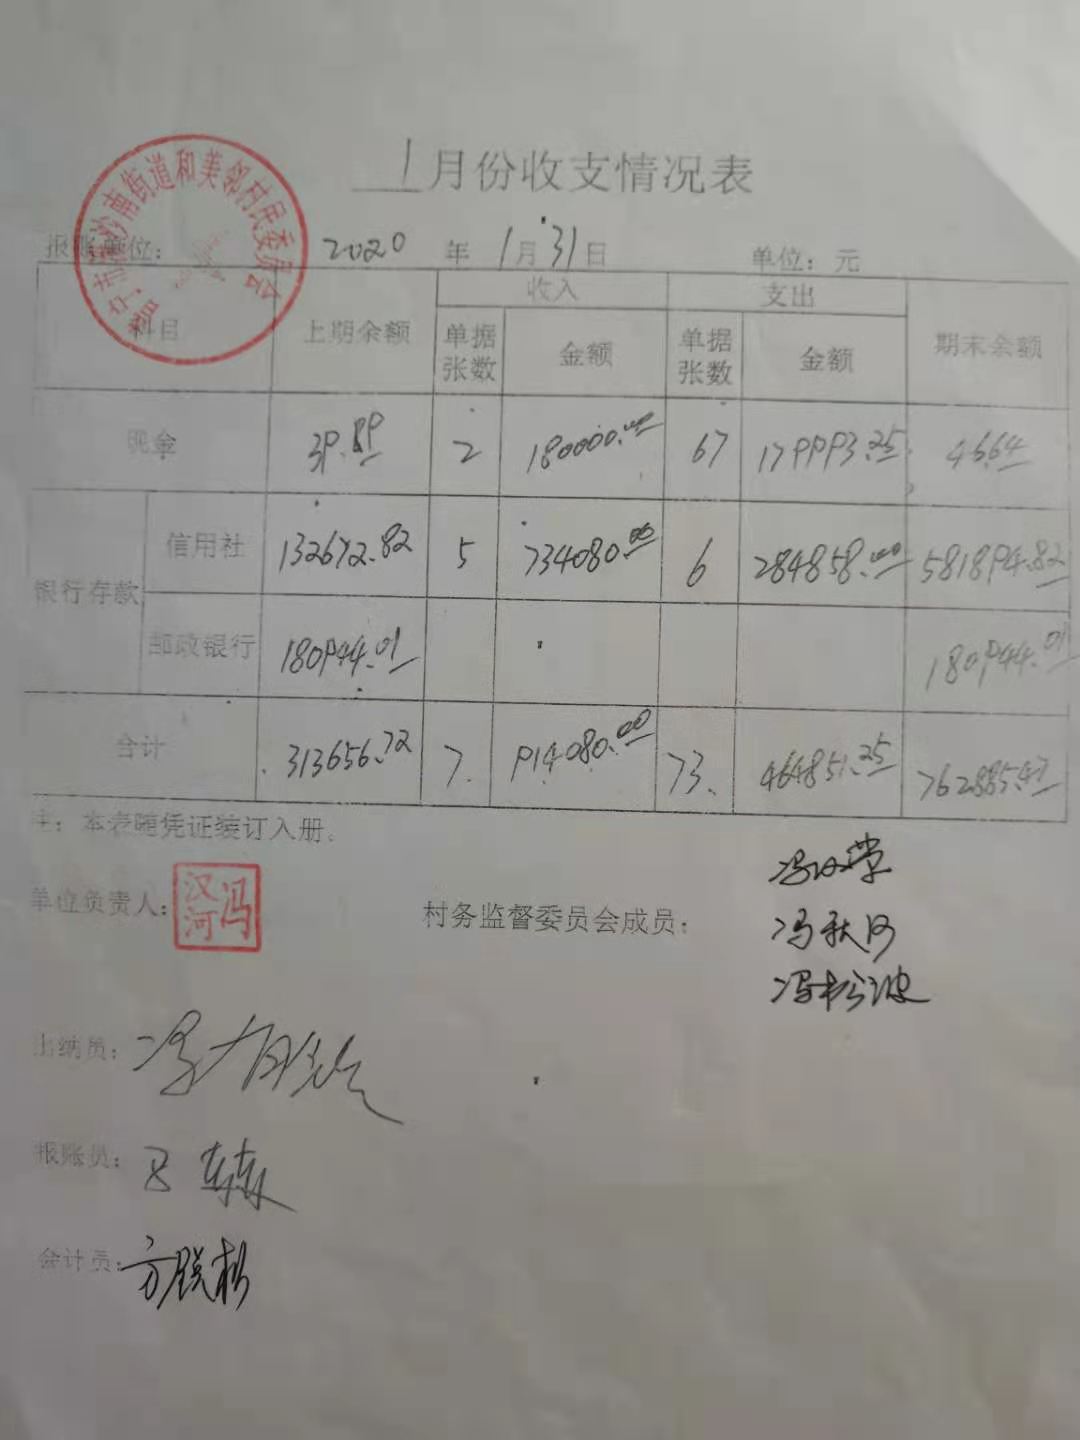 1月份收支情况表
报账单位： 2020年1月31日 单位：元
街道和美邻村民委员会
科目 上期余额 收入 支出 期末余额
单据张数 金额 单据张数 金额
现金 39.89 2 180000.00 67 179993.25 46.64
银行存款 信用社 132672.82 5 734080.00 6 284858.00 581894.82
邮政银行 180944.01 180944.01
合计 313656.72 7 914080.00 73 464851.25 762885.47
注：本表随凭证装订入册。
单位负责人： 冯汉河 村务监督委员会成员：
冯秋河
冯松波
出纳员：
报账员：
会计员：